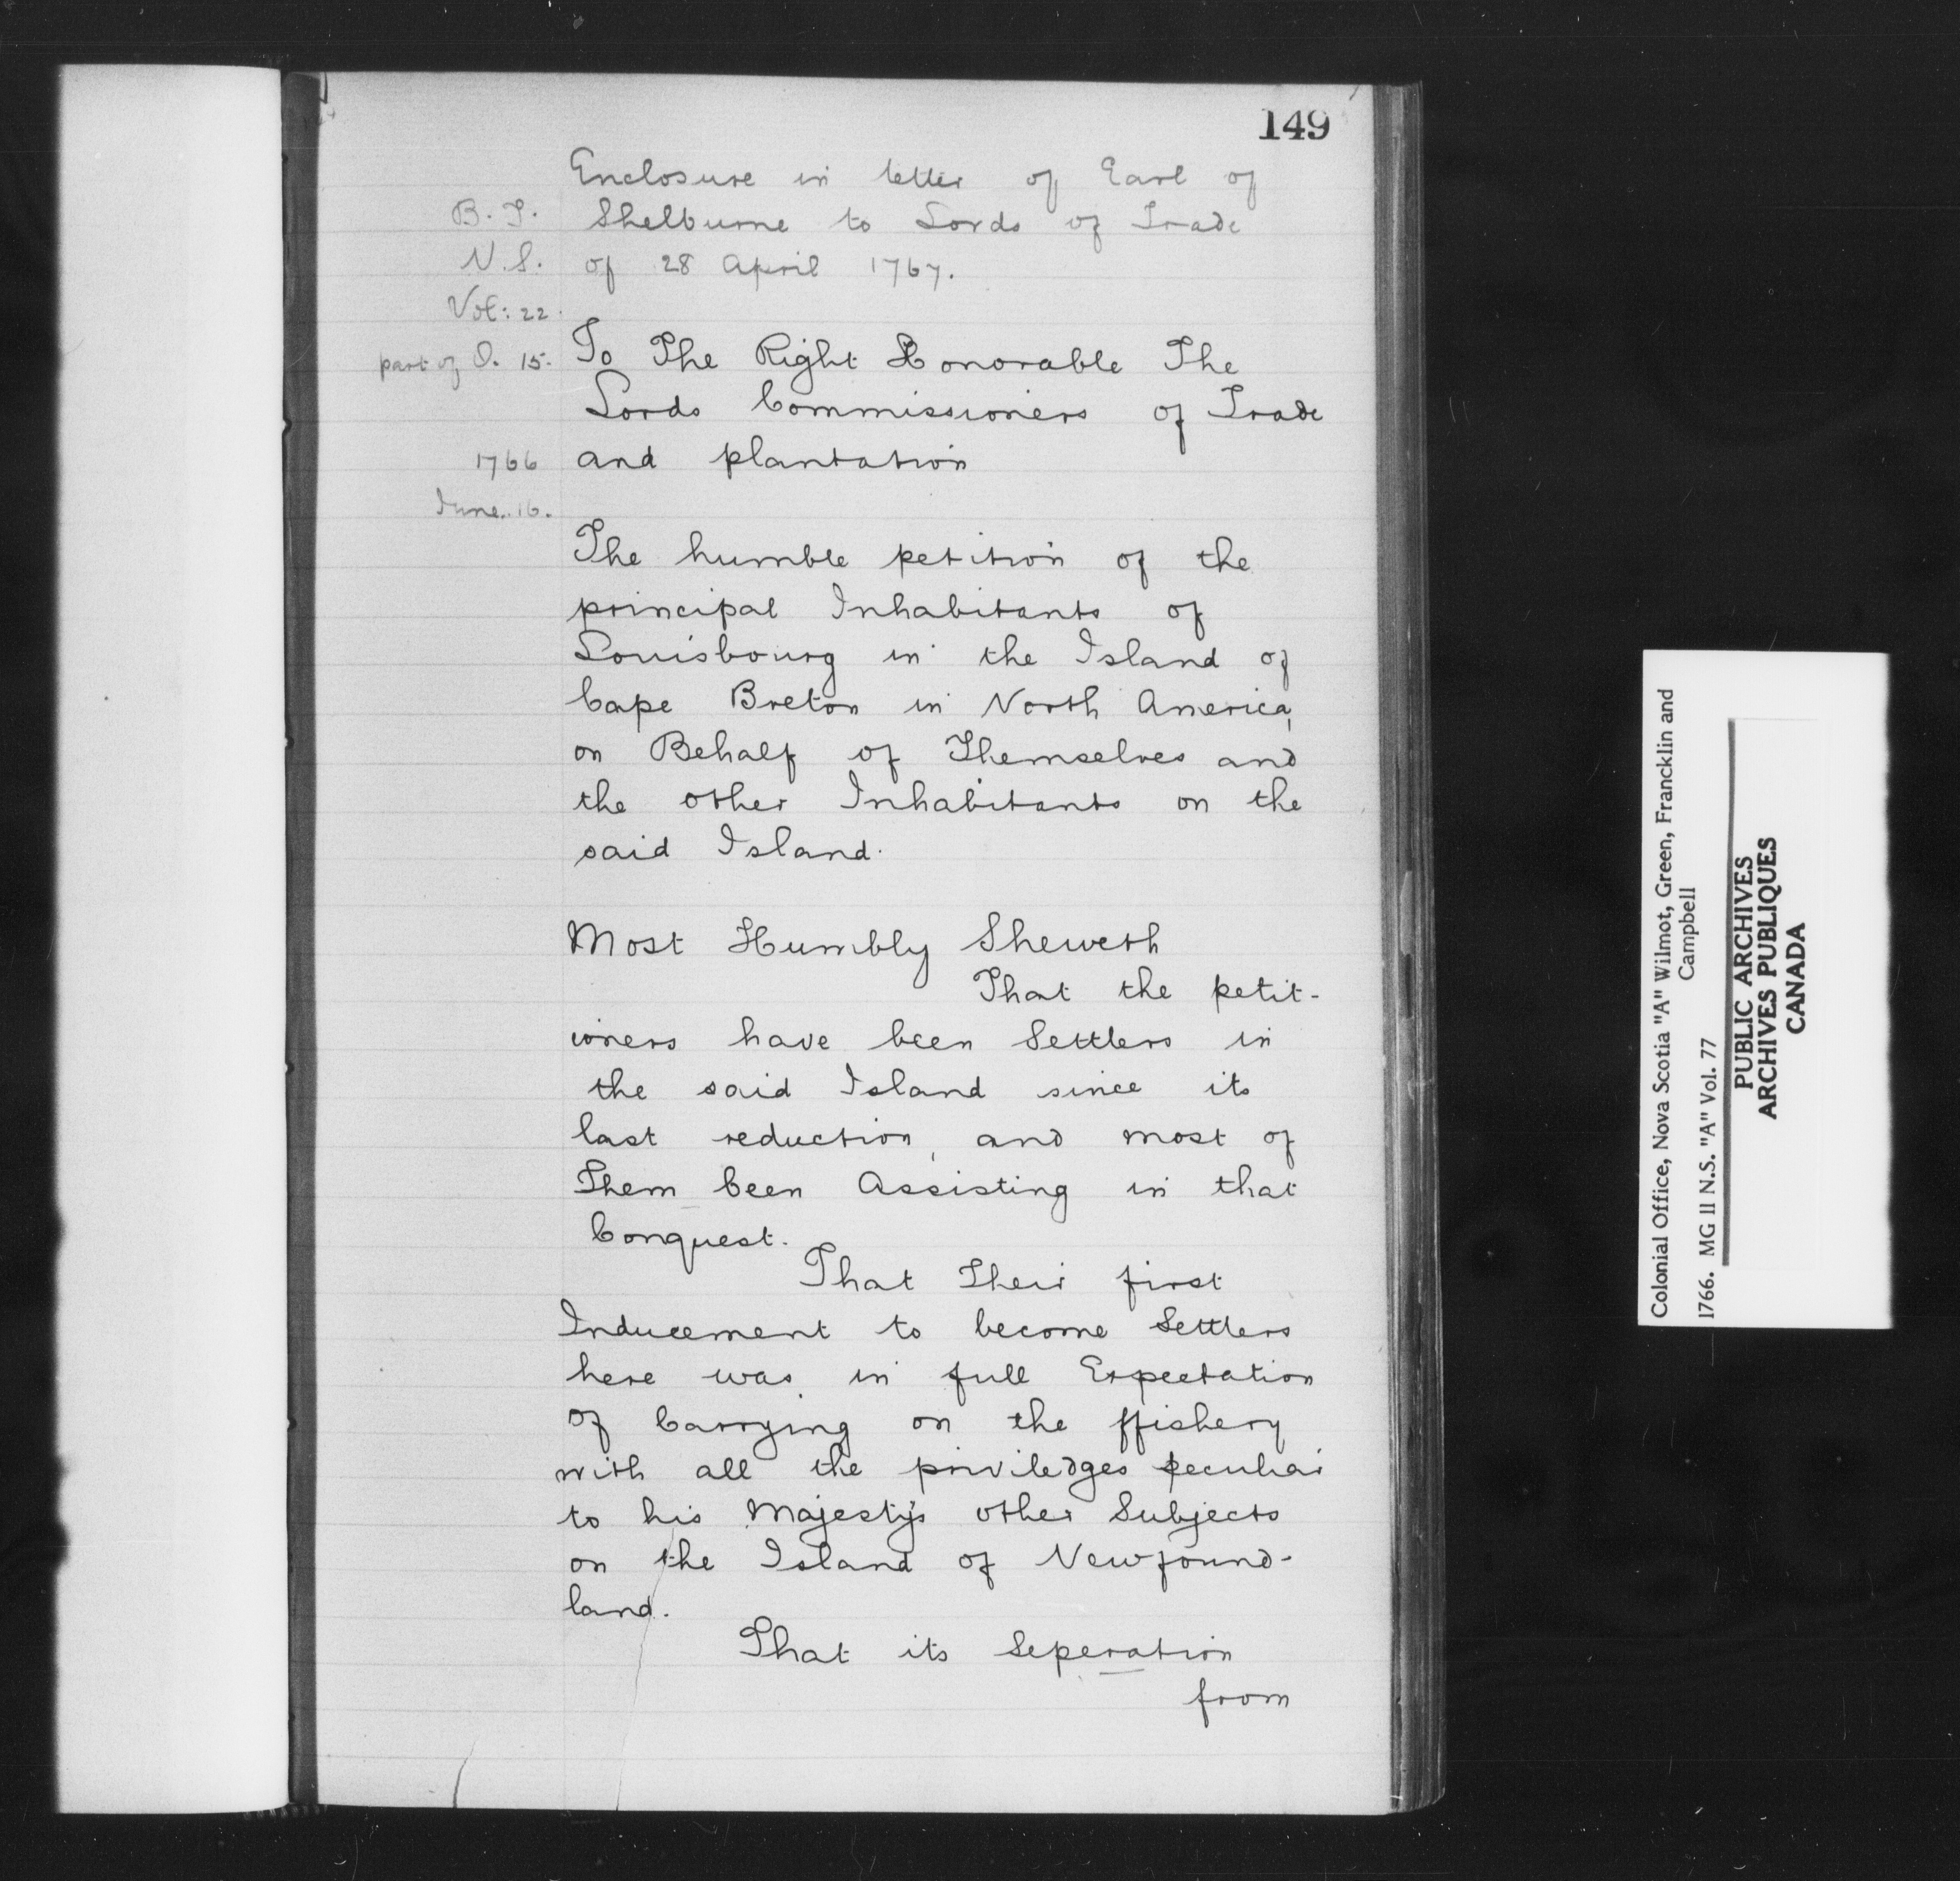 149
Enclosure in letter of Earl of
B. T. Shelburne to Lords of Trade
N.S. of 28 April 1767.
Vol: 22.
part of O. 15. To The Right Honorable The
Lords Commissioners of Trade
1766 and plantation
June. 16.
The humble petition of the
principal Inhabitants of
Louisbourg in the Island of
Cape Breton in North America,
on Behalf of Themselves and
the other Inhabitants on the
said Island.
Most Humbly Sheweth
That the petit-
ioners have been Settlers in
the said Island since its
last reduction, and most of
Them been Assisting in that
Conquest.
That Their first
Inducement to become Settlers
here was in full Expectation
of Carrying on the ffishery
with all the priviledges peculiar
to his Majesty's other Subjects
on the Island of Newfound-
land.
That its Seperation
from
Colonial Office, Nova Scotia "A" Wilmot, Green, Francklin and
Campbell
1766. MG 11 N.S. "A" Vol. 77
PUBLIC ARCHIVES
ARCHIVES PUBLIQUES
CANADA